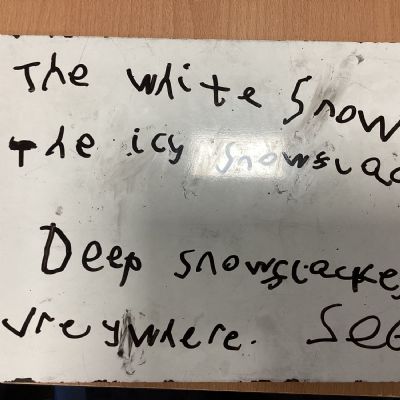 The white Snow
The icy snowsca
Deep snowscacke
vreywhere. See